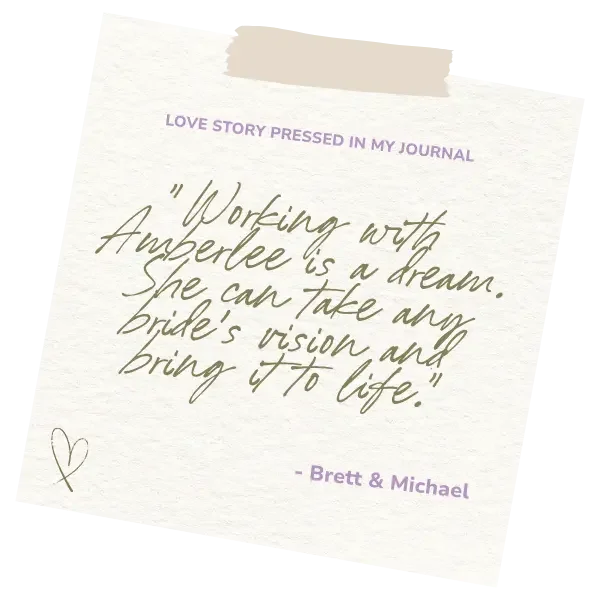 LOVE STORY PRESSED IN MY JOURNAL
"Working with
Amberlee is a dream.
She can take any
bride's vision and
bring it to life."
- Brett & Michael